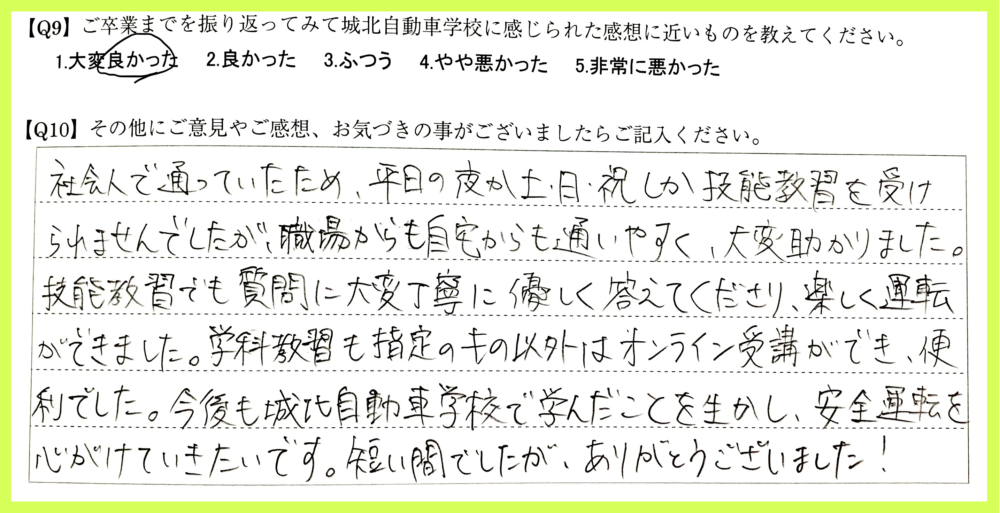 【Q9】ご卒業までを振り返ってみて城北自動車学校に感じられた感想に近いものを教えてください。
1.大変良かった 2.良かった 3.ふつう 4.やや悪かった 5.非常に悪かった
【Q10】その他にご意見やご感想、お気づきの事がございましたらご記入ください。
社会人で通っていたため、平日の夜か土・日・祝しか技能教習を受け
られませんでしたが、職場からも自宅からも通いやすく、大変助かりました。
技能教習でも質問に大変丁寧に優しく答えてくださり、楽しく運転
ができました。学科教習も指定のもの以外はオンライン受講ができ、便
利でした。今後も城北自動車学校で学んだことを生かし、安全運転を
心がけていきたいです。短い間でしたが、ありがとうございました!